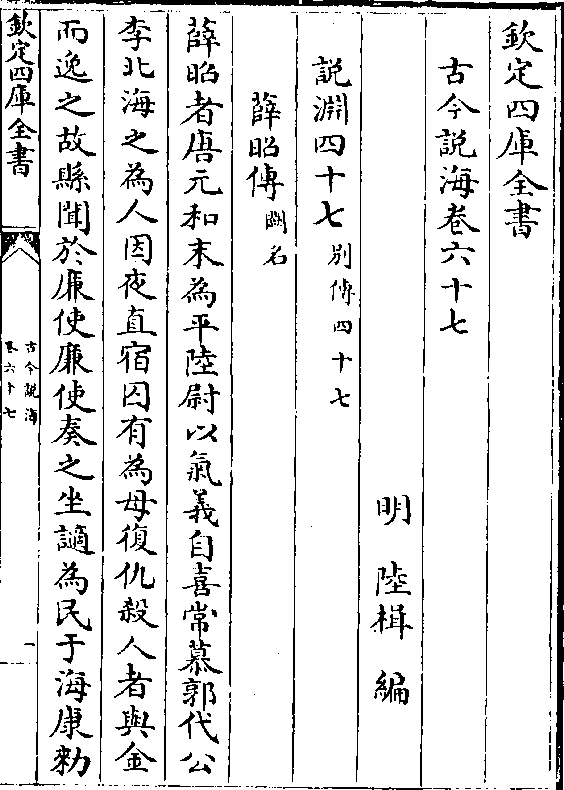 欽定四庫全書
古今説海卷六十七
明 陸楫 編
説淵四十七 别傳四十七
薛昭傳 闕名
薛昭者唐元和末為平陸尉以氣義自喜常慕郭代公
李北海之為人因夜直宿囚有為母復仇殺人者與金
而逸之故縣聞於廉使廉使奏之坐謫為民于海康勅
欽定四庫全書
古今説海
卷六十七
一